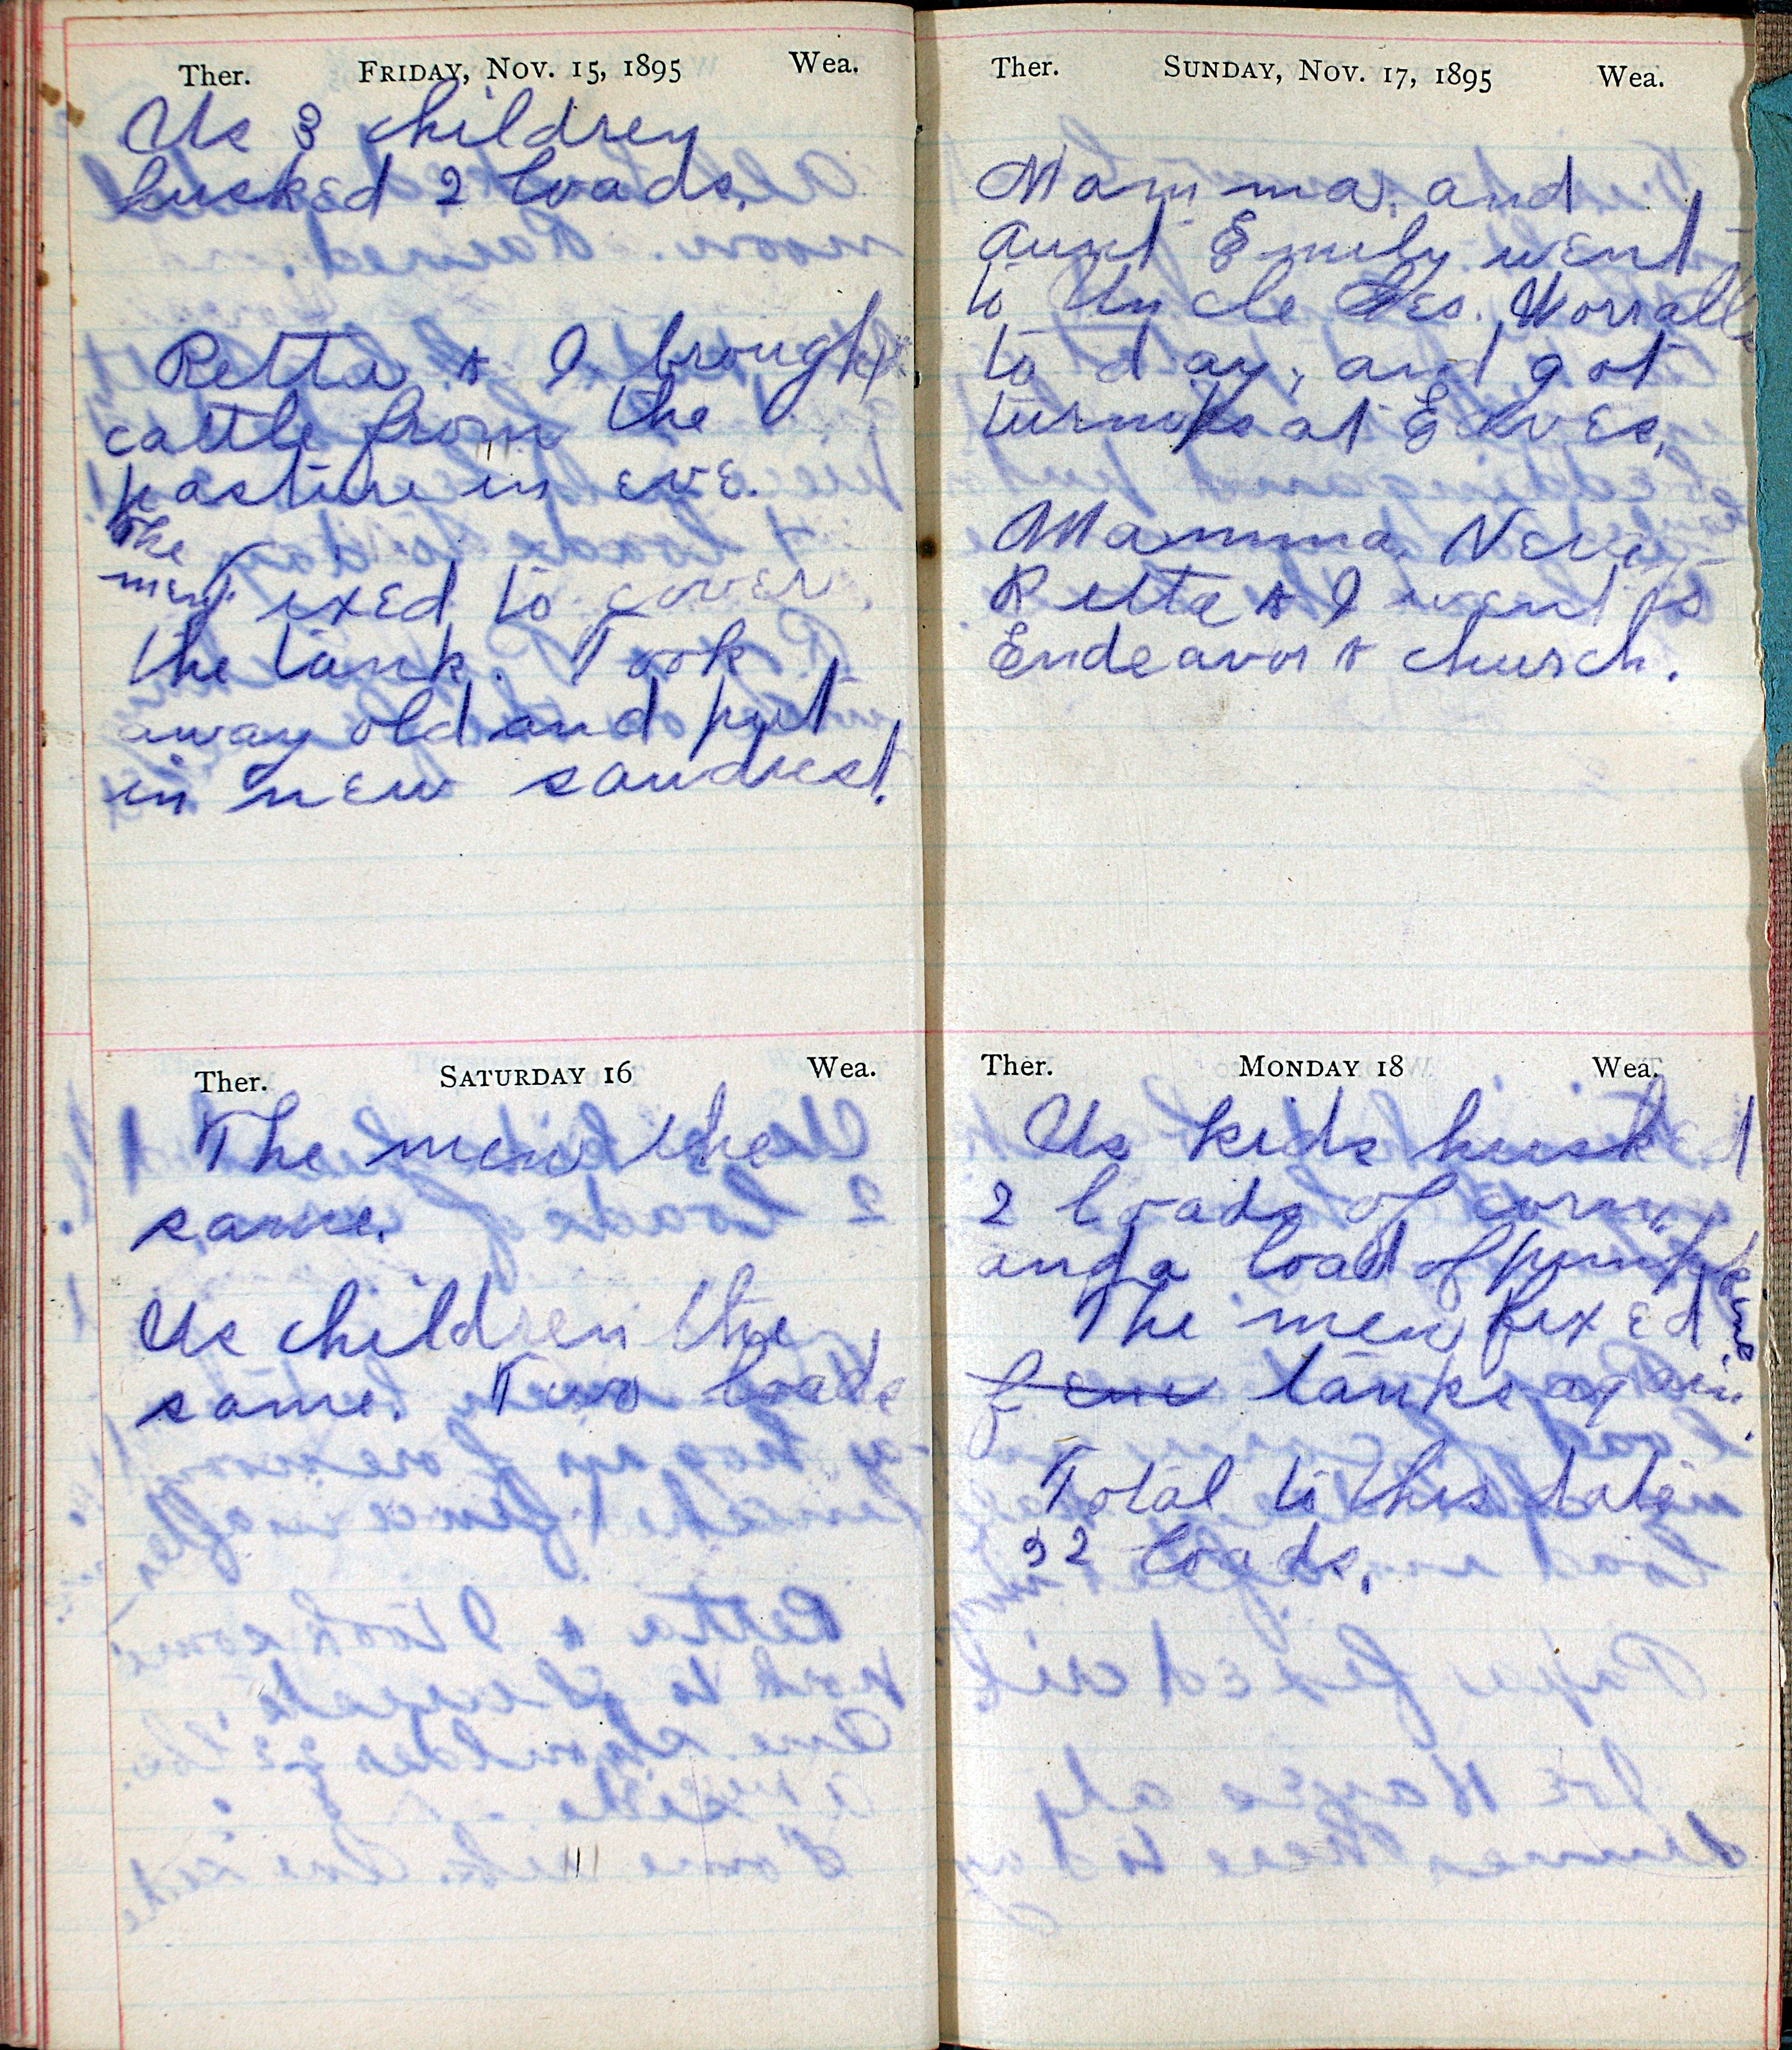 Ther. FRIDAY, NOV. 15, 1895 Wea.
Us 3 children
husked 2 loads.
Retta & I brought
cattle from the
pasture in eve.
The
men fixed to cover
the tank. Took
away old and put
in new sawdust.
Ther. SATURDAY 16 Wea.
The men the
same.
Us children the
same. Two loads
Ther. SUNDAY, NOV. 17, 1895 Wea.
Mamma, and
Aunt Emily went
to Uncle Worralls
to day, and got
turnips at
Mamma,
Retta & I went to
Endeavor & church.
Ther. MONDAY 18 Wea.
Us kids husked
2 loads of corn,
and a load of pumpkens
The men fixed
tanks again.
Total to this date
32 loads,